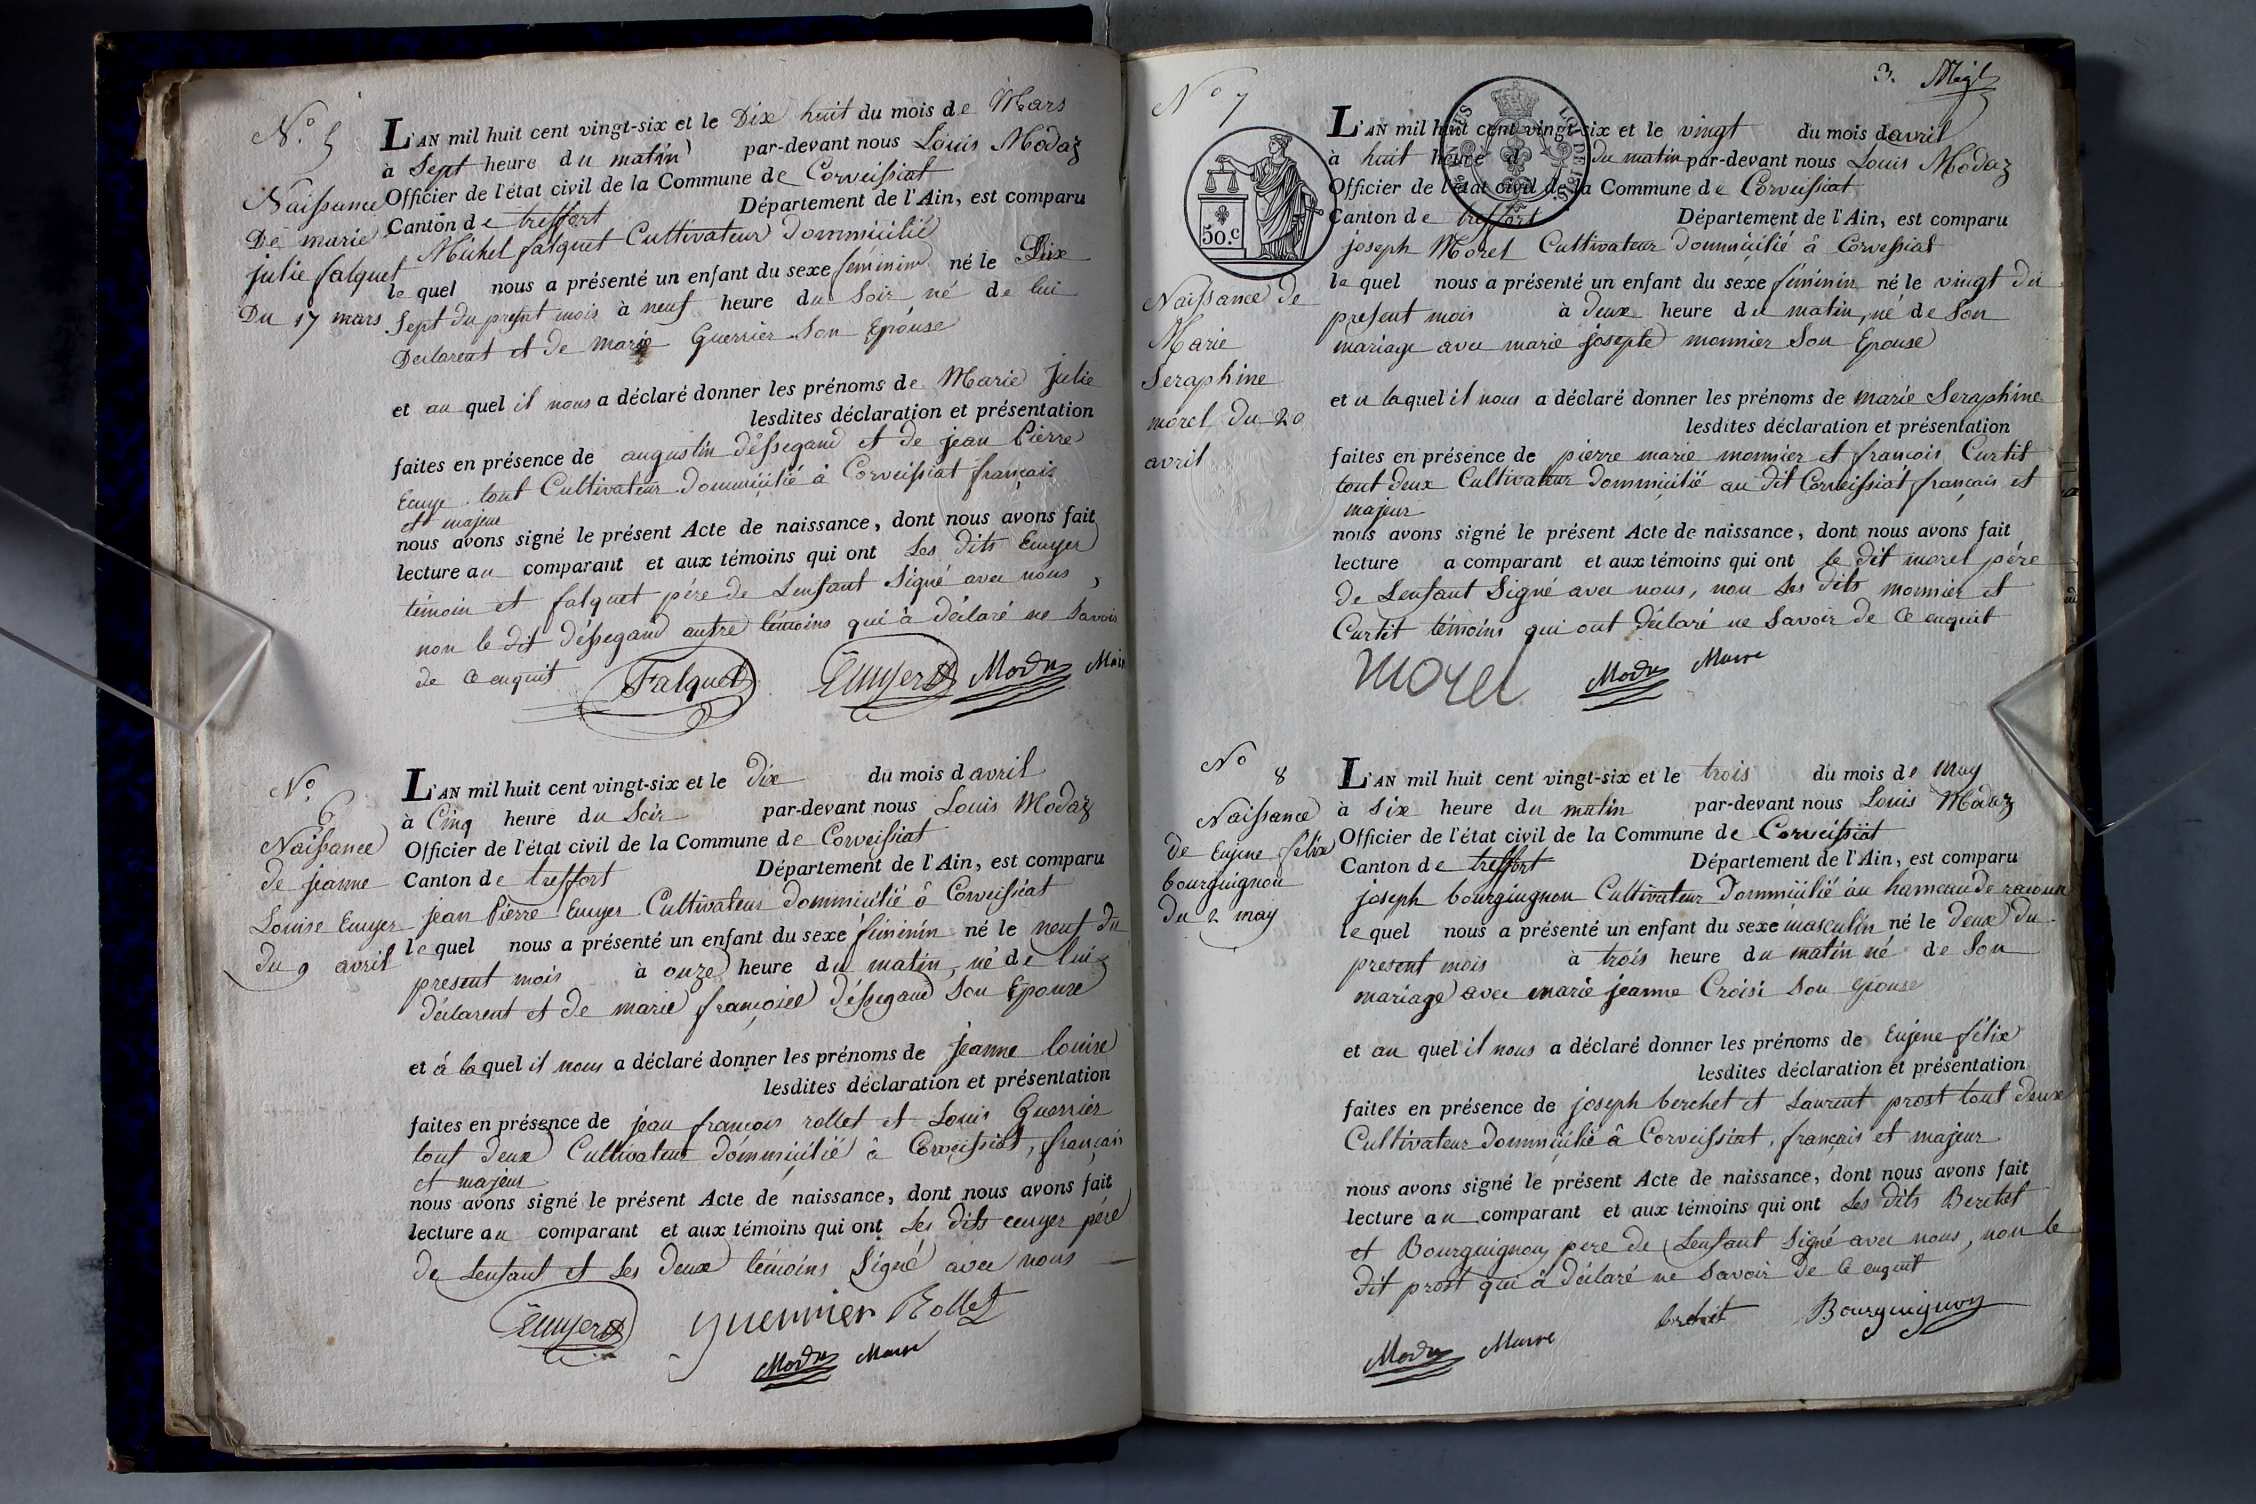 N.o 5
Naissance
De marie
julie falquet
Du 17 mars
L'AN mil huit cent vingt-six et le Dix huit du mois de Mars
à Sept heure du matin par-devant nous Louis Modaz
Officier de l'état civil de la Commune de Corveissiat
Canton de treffort Département de l'Ain, est comparu
Michel falquet Cultivateur dommicilié
le quel nous a présenté un enfant du sexe feminin né le Dix
Sept du present mois à neuf heure du Soir né de lui
Declarent et de marie Guerrier Son Epouse
et au quel il nous a déclaré donner les prénoms de Marie Julie
lesdites déclaration et présentation
faites en présence de augustin dessegand et de jean Pierre
tout Cultivateur dommicilié à Corveissiat français
et majeur
nous avons signé le présent Acte de naissance, dont nous avons fait
lecture au comparant et aux témoins qui ont Les dits
témoin et falquet père de Lenfant Signé avec nous,
non le dit dessegand autre témoins qui à déclaré ne Savoir
de ce enquit
Falquet Modaz
N.o 6
Naissance
de jeanne
Louise
du 9 avril
L'AN mil huit cent vingt-six et le dix du mois d avril
à Cinq heure du Soir par-devant nous Louis Modaz
Officier de l'état civil de la Commune de Corveissiat
Canton de treffort Département de l'Ain, est comparu
jean Pierre Cultivateur dommicilié à Corveissiat
le quel nous a présenté un enfant du sexe féminin né le neuf du
present mois à onze heure du matin, né de lui
déclarent et de marie françoise dessegand Son Epouse
et à la quel il nous a déclaré donner les prénoms de jeanne louise
lesdites déclaration et présentation
faites en présence de jean françois rollet et Louis Guerrier
tout deux Cultivateur dommicilié à Corveissiat, français
et majeur
nous avons signé le présent Acte de naissance, dont nous avons fait
lecture au comparant et aux témoins qui ont Les dits père
de Lenfant et Les deux témoins Signé avec nous
guerrier Rollet
Modaz Maire
3.
N o 7
50.C
Naissance de
Marie
Seraphine
morel du 20
avril
L'AN mil huit cent vingt-six et le vingt du mois d avril
à huit heure d du matin par-devant nous Louis Modaz
Officier de l'état civil de la Commune de Corveissiat
Canton de treffort Département de l'Ain, est comparu
joseph Morel Cultivateur dommicilié à Corvessiat
le quel nous a présenté un enfant du sexe féminin né le vingt du
present mois à deux heure du matin, né de Son
mariage avec marie josepte monnier Son Epouse
et a laquel il nous a déclaré donner les prénoms de marie Seraphine
lesdites déclaration et présentation
faites en présence de pierre marie monnier et francois Curtit
tout deux Cultivateur dommicilié au dit Corveissiat français et
majeur
nous avons signé le présent Acte de naissance, dont nous avons fait
lecture a comparant et aux témoins qui ont le dit morel père
de Lenfant Signé avec nous, non Les dits monnier et
Curtit témoins qui ont déclaré ne Savoir de ce enquit
morel Modaz Maire
No 8
Naissance
de Eujene félix
bourguignon
du 2 may
L'AN mil huit cent vingt-six et le trois du mois de May
à Six heure du matin par-devant nous Louis Modaz
Officier de l'état civil de la Commune de Corveissiat
Canton de treffort Département de l'Ain, est comparu
joseph bourguignon Cultivateur dommicilié au hameau de
le quel nous a présenté un enfant du sexe masculin né le deux du
present mois à trois heure du matin né de Son
mariage avec marie jeanne Croisi Son epouse
et au quel il nous a déclaré donner les prénoms de Eujene félix
lesdites déclaration et présentation
faites en présence de joseph berchet et Laurent prost tout deux
Cultivateur dommicilié à Corveissiat, français et majeur
nous avons signé le présent Acte de naissance, dont nous avons fait
lecture au comparant et aux témoins qui ont Les dits Berchet
et Bourguignon pere de Lenfant Signé avec nous, non le
dit prost qui à déclaré ne Savoir de ce enquit
berchet Bourguignon
Modaz Maire